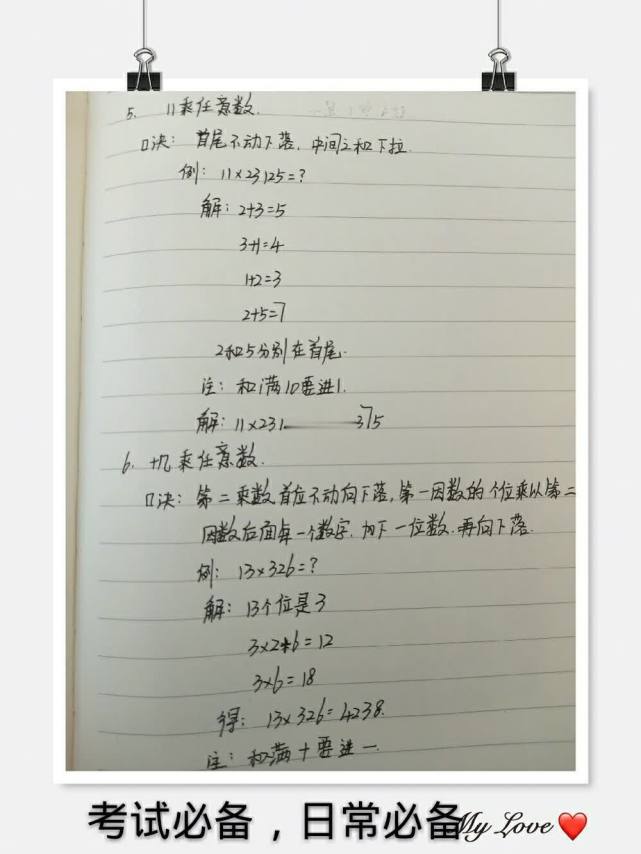 5. 11乘任意数.
口决: 首尾不动下落, 中间之和下拉.
例: 11×23125=?
解: 2+3=5
3+1=4
1+2=3
2+5=7
2和5分别在首尾.
注: 和满10要进1.
解: 11×231 375
6. 十几乘任意数.
口决: 第二乘数首位不动向下落, 第一因数的个位乘以第二
因数后面每一个数字, 加下一位数, 再向下落.
例: 13×326=?
解: 13个位是3
3×2+6=12
3×6=18
得: 13×326=4238.
注: 和满十要进一.
考试必备，日常必备
My Love